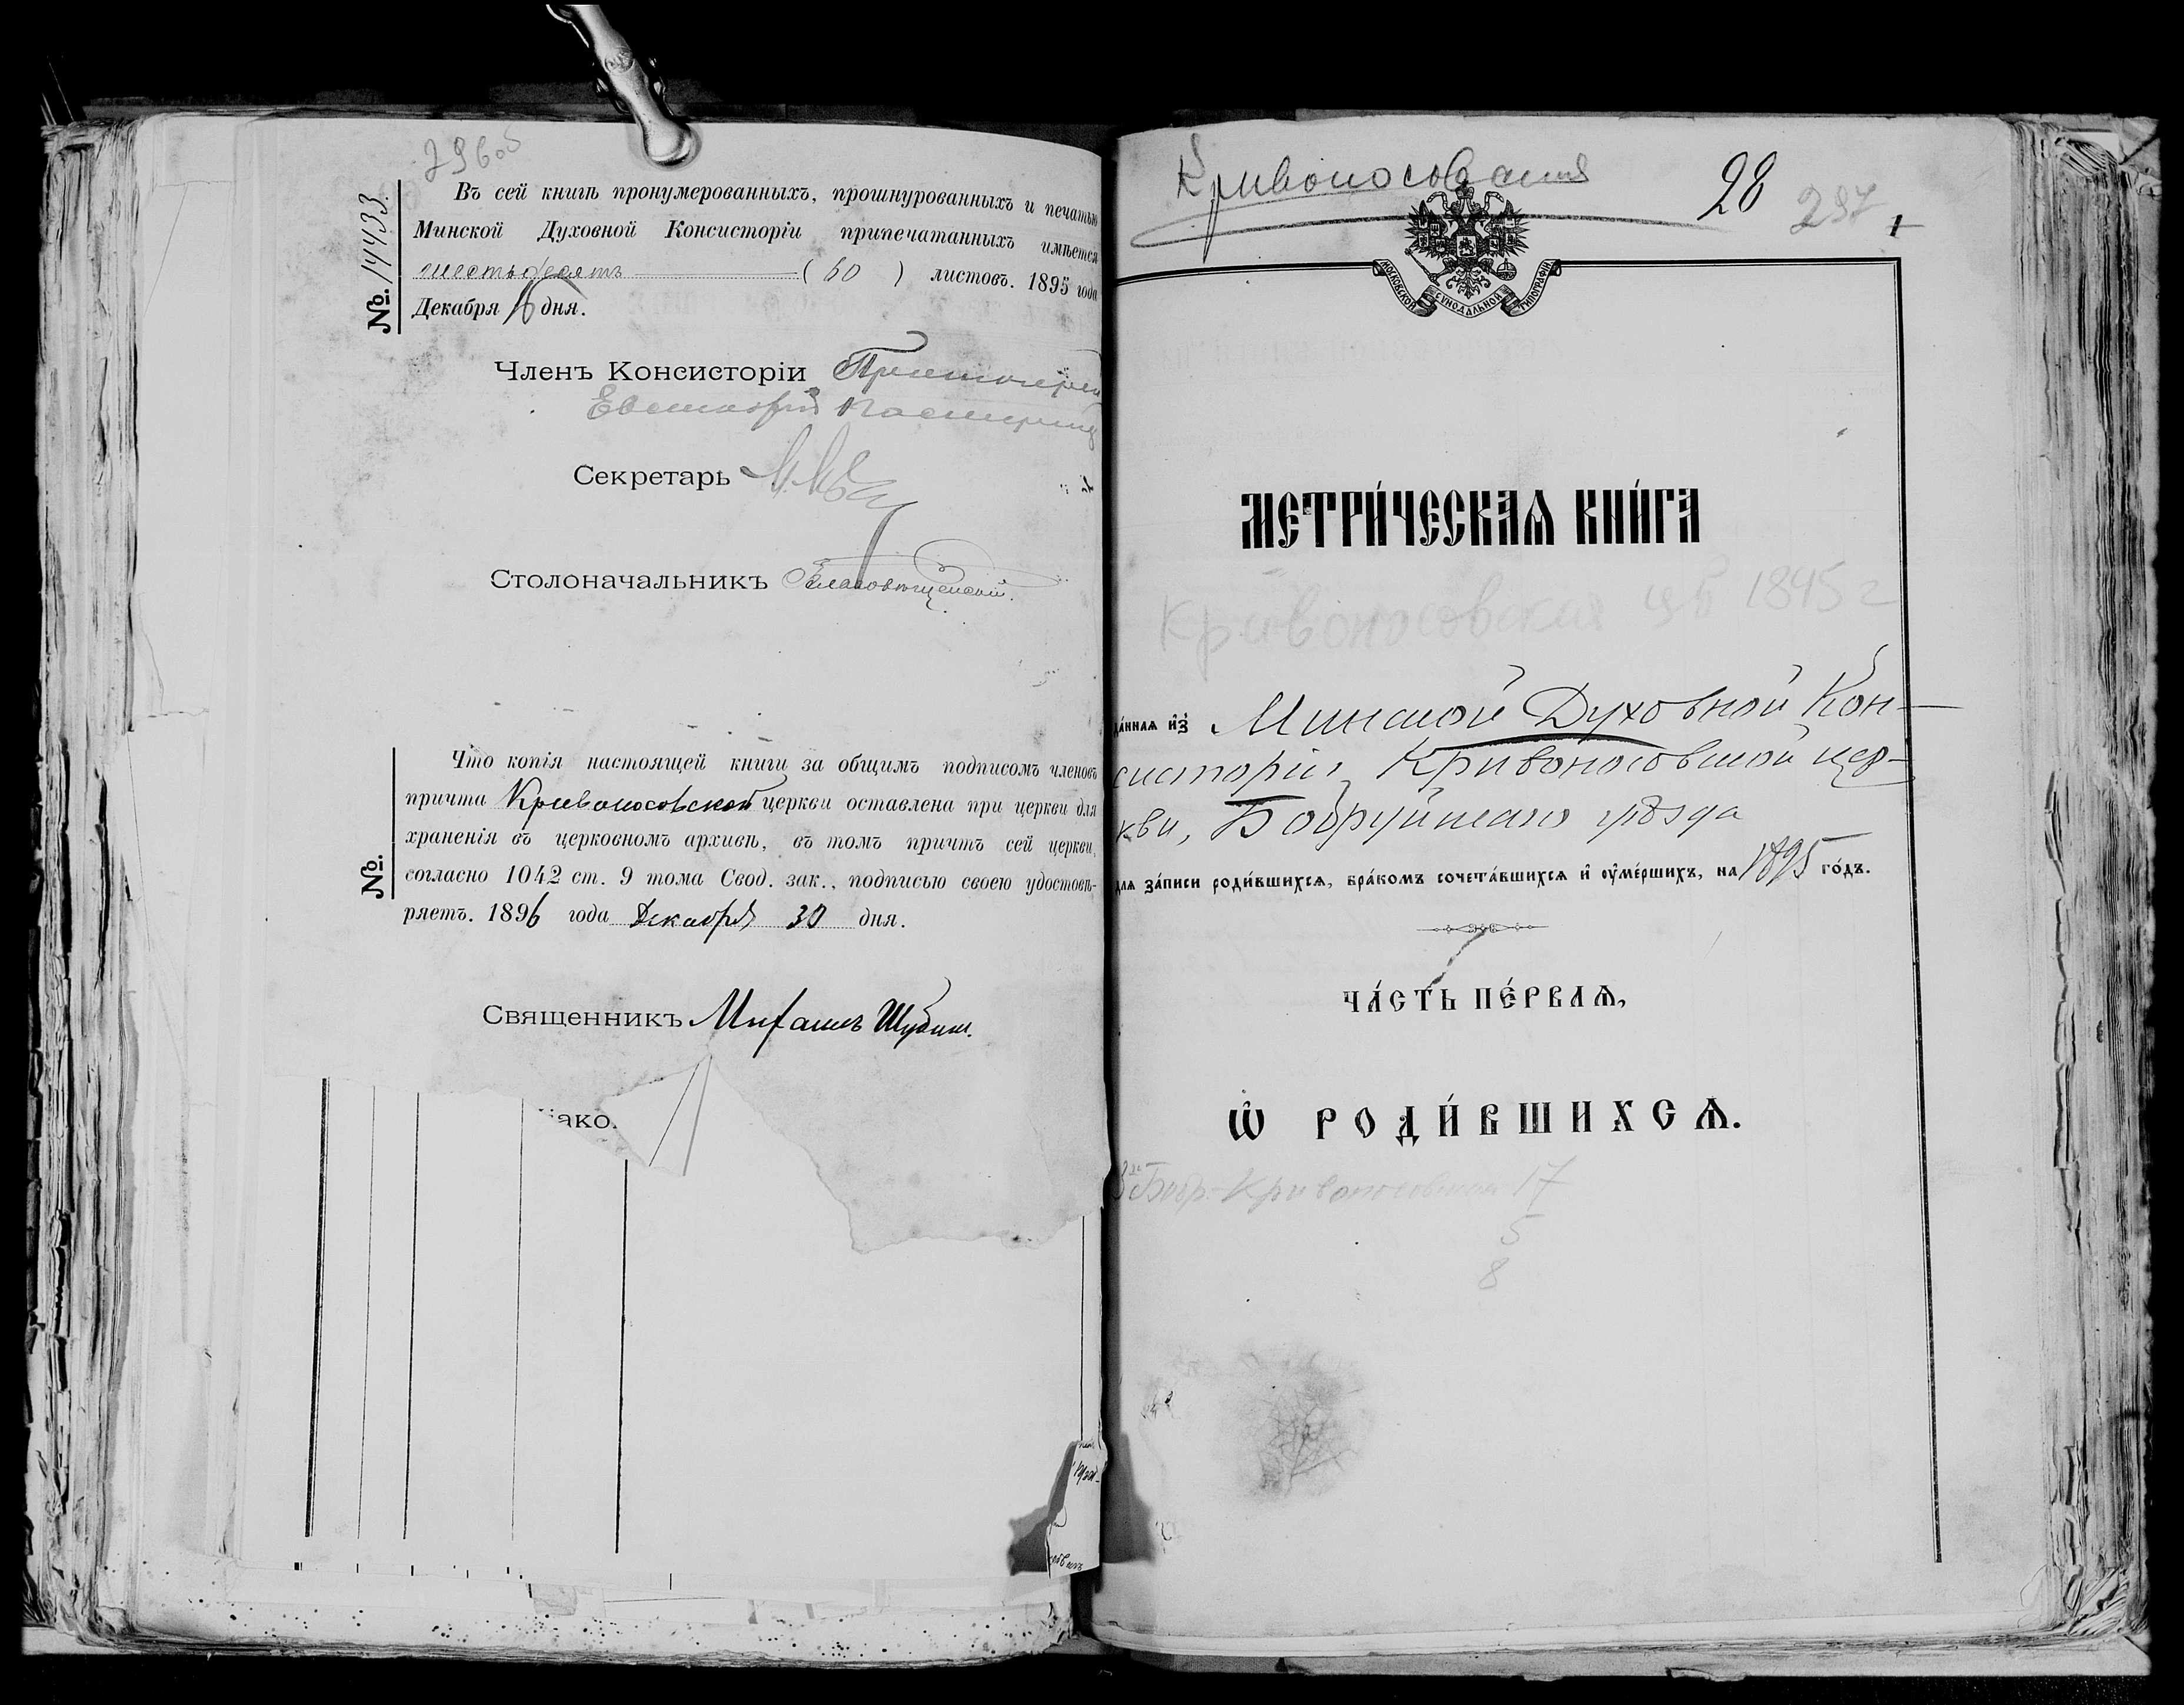 29 боб
№. 14433.
Въ сей книгѣ пронумерованныхъ, прошнурованныхъ и печатью
Минской Духовной Консисторіи припечатанныхъ имѣется
шестьдесятъ (60) листовъ. 1895 года
Декабря 16 дня.
Членъ Консисторіи Протоіерей
Секретарь
Столоначальникъ Благовѣщенскій.
№.
Что копія настоящей книги за общимъ подписомъ членовъ
причта Кривоносовской церкви оставлена при церкви для
храненія въ церковномъ архивѣ, въ томъ причтъ сей церкви,
согласно 1042 ст. 9 тома Свод. зак., подписью своею удостовѣ-
ряетъ. 1896 года Декабря 30 дня.
Священникъ Михаилъ
Кривоносовская 28 297 1
МОСКОВСКОЙ СѴНОДАЛЬНОЙ ТИПОГРАФІИ
МЕТРИ́ЧЕСКАѦ КНИ́ГА
Кривоносовская цб 1895 г
да́ннаѧ и҆з̾ Минской Духовной Кон-
систоріи, Кривоносовской цер-
кви, Бобруйскаго уѣзда
для за́писи роди́вшихсѧ, бра́комъ сочета́вшихсѧ и҆ ᲂу҆ме́ршихъ, на 1895 го́дъ.
ЧА́СТЬ ПЕ́РВАѦ,
Ѽ РОДИ́ВШИХСѦ.
Бобр. Кривоносовская 17
5
8